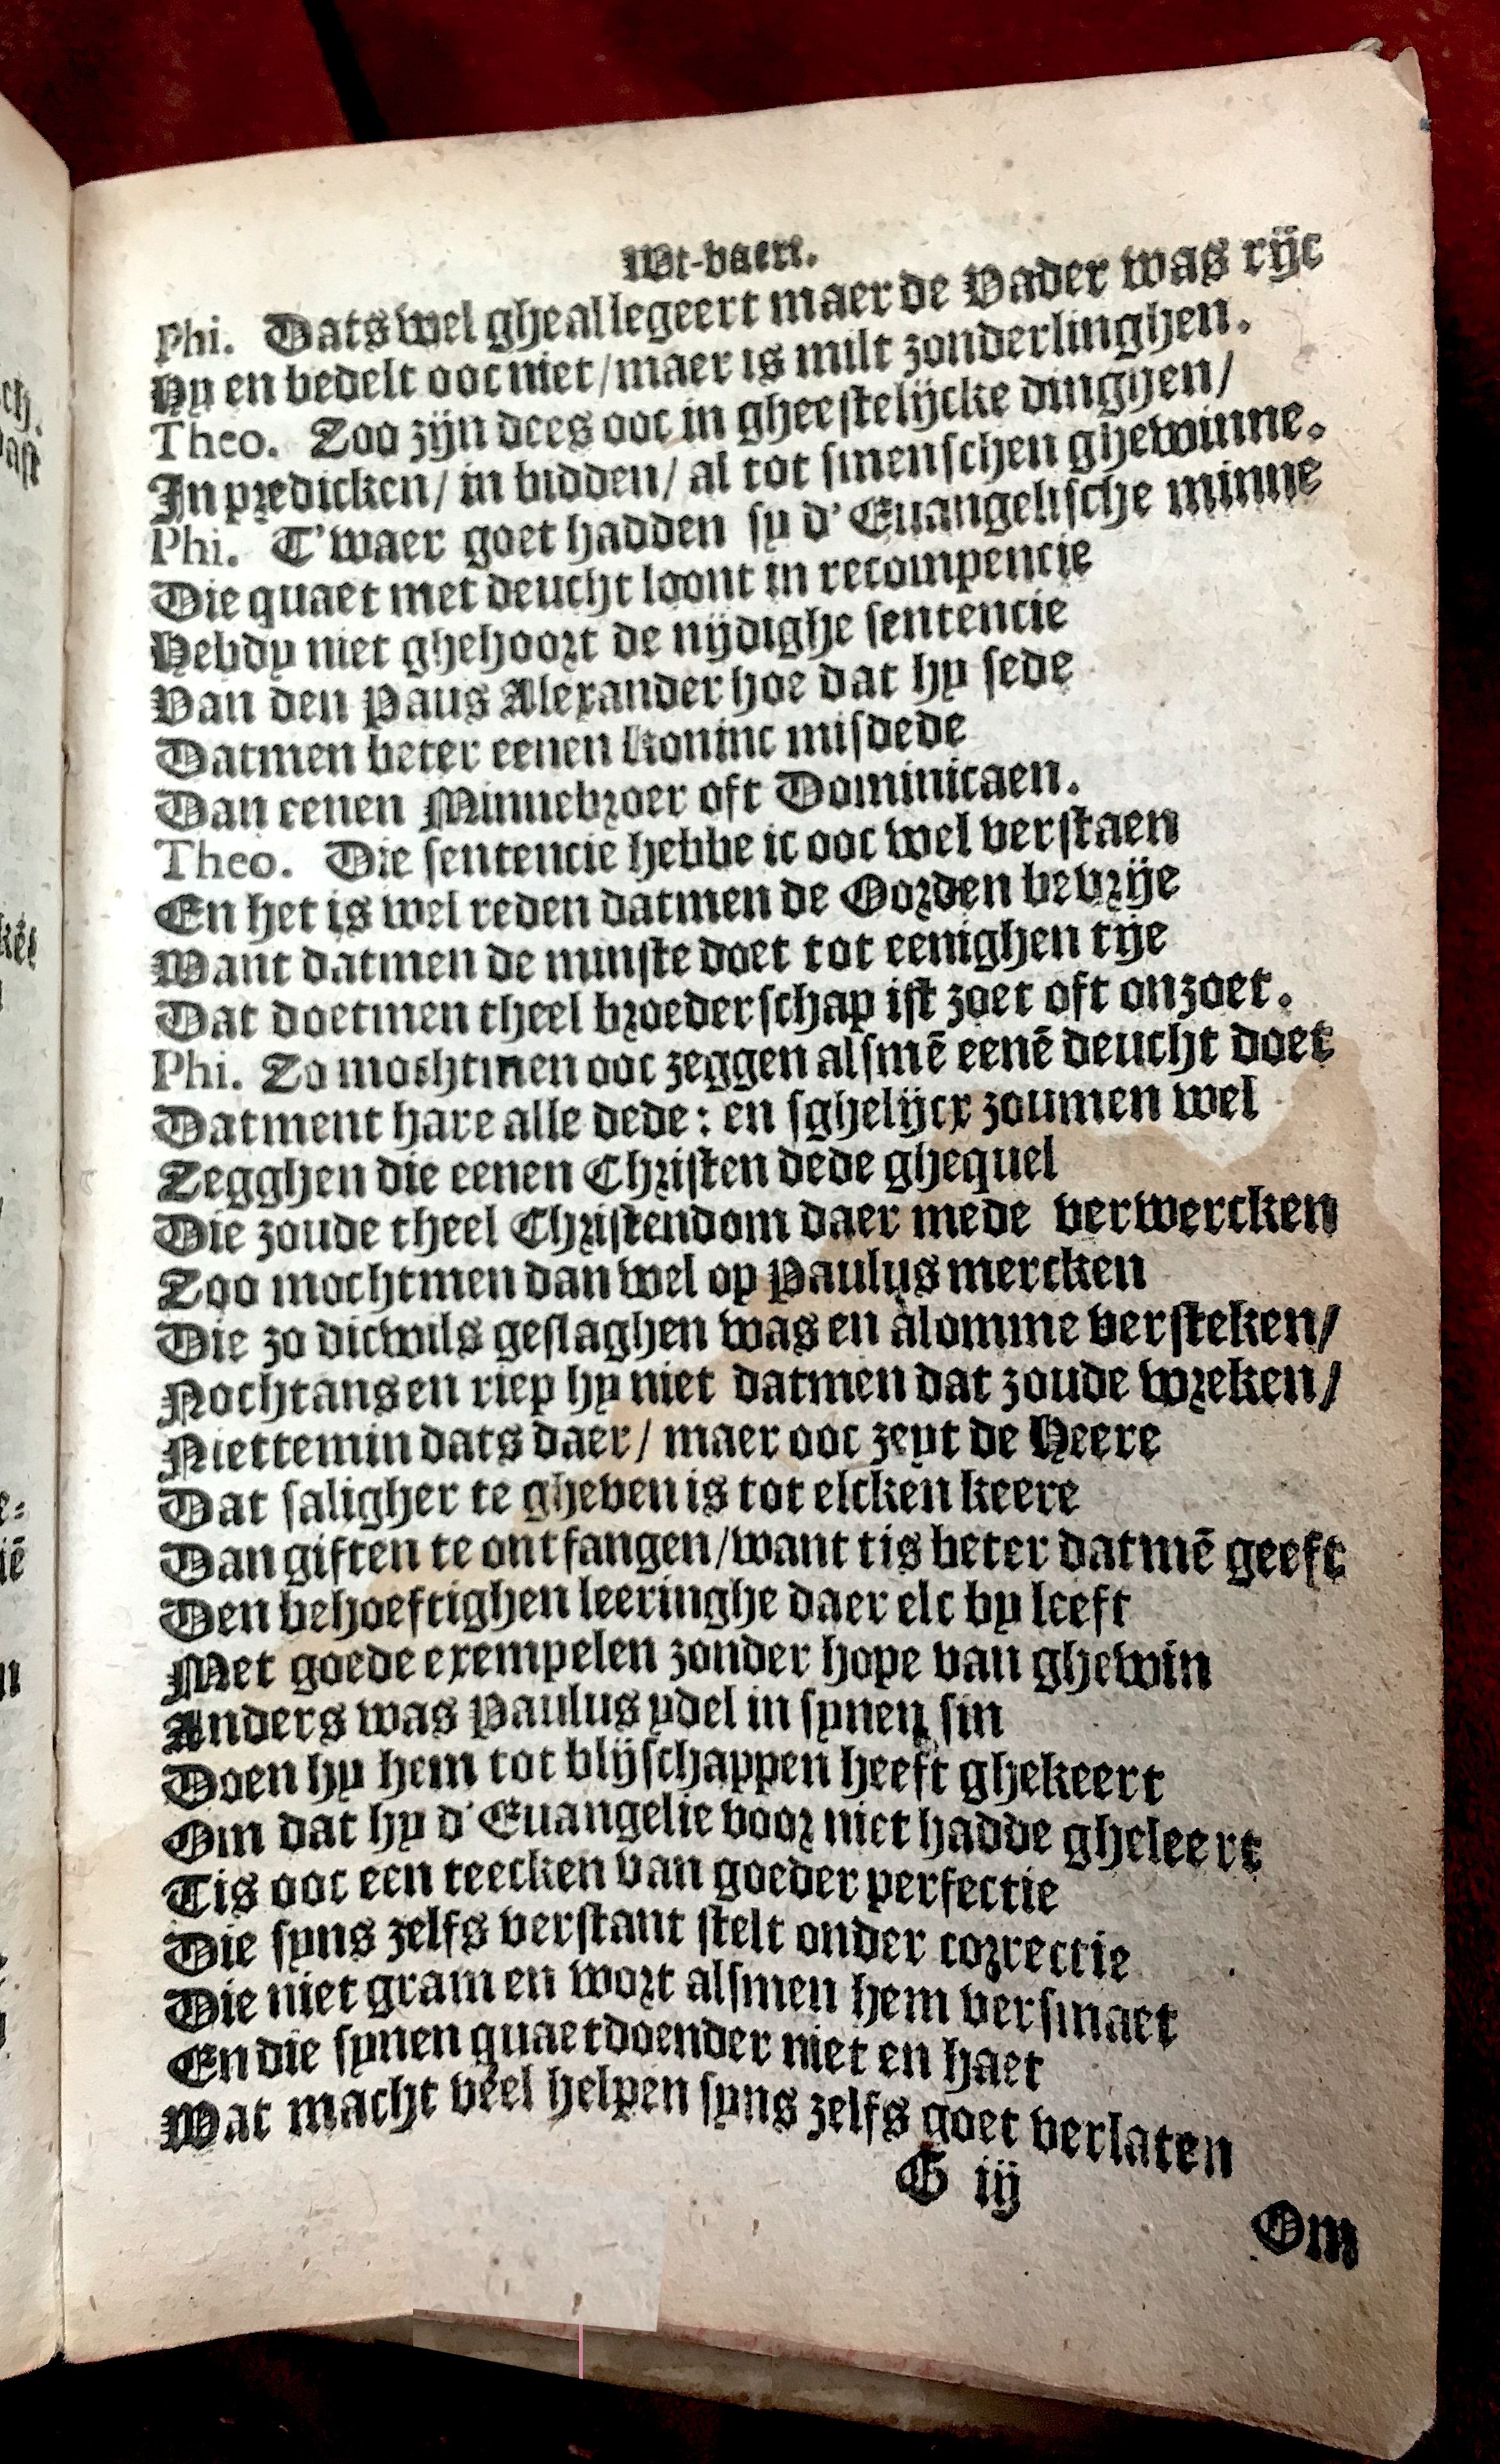 Wt-vaert.
Phi. Dats wel gheallegeert maer de Vader was rijc
Hy en bedelt ooc niet/maer is milt zonderlinghen.
Theo. Zoo zijn dees ooc in gheestelijcke dinghen/
In predicken/ in bidden/ al tot smenschen ghewinne.
Phi. T'waer goet hadden sy d'Euangelische minne
Die quaet met deucht loont in recompencie
Hebdy niet ghehoort de nijdighe sentencie
Van den Paus Alexander hoe dat hy sede
Datmen beter eenen Koninc misdede
Dan eenen Minnebroer oft Dominicaen.
Theo. Die sentencie hebbe ic ooc wel verstaen
En het is wel reden datmen de Oorden bevrije
Want datmen de minste doet tot eenighen tije
Dat doetmen theel broederschap ist zoet oft onzoet.
Phi. Zo mochtmen ooc zeggen alsmē eenē deucht doet
Datment hare alle dede: en sghelijcx zoumen wel
Zegghen die eenen Christen dede ghequel
Die zoude theel Christendom daer mede verwercken
Zoo mochtmen dan wel op Paulus mercken
Die zo dicwils geslaghen was en alomme versteken/
Nochtans en riep hy niet datmen dat zoude wreken/
Niettemin dats daer/ maer ooc zeyt de Heere
Dat saligher te gheven is tot elcken keere
Dan giften te ontfangen/want tis beter datmē geeft
Den behoeftighen leeringhe daer elc by leeft
Met goede exempelen zonder hope van ghewin
Anders was Paulus ydel in synen sin
Doen hy hem tot blijschappen heeft ghekeert
Om dat hy d'Euangelie voor niet hadde gheleert
Tis ooc een teecken van goeder perfectie
Die syns zelfs verstant stelt onder correctie
Die niet gram en wort alsmen hem versmaet
En die synen quaetdoender niet en haet
Wat macht veel helpen syns zelfs goet verlaten
G ij
Om